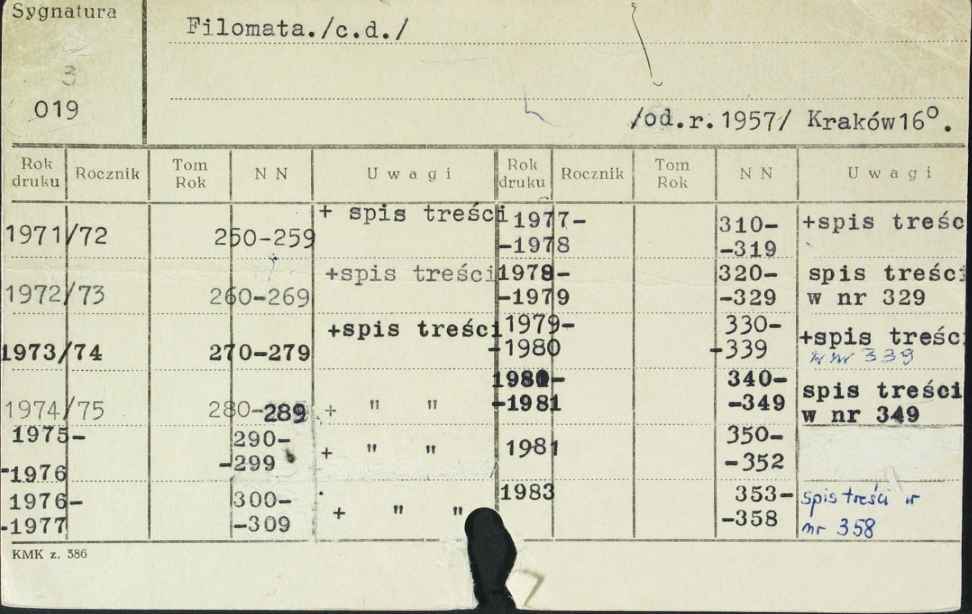 Sygnatura
3
019
Filomata./c.d./
/od.r.1957/ Kraków16o.
Rok druku Rocznik Tom Rok N N Uwagi Rok druku Rocznik Tom Rok N N Uwagi
1971/72 250-259 + spis treści
1972/73 260-269 +spis treści
1973/74 270-279 +spis treści
1974/75 280-289 + " "
1975-
-1976 290-
-299 + " "
1976-
-1977 300-
-309 + " "
1977-
-1978 310-
-319 +spis treśc
1978-
-1979 320-
-329 spis treści
w nr 329
1979-
-1980 330-
-339 +spis treści
w nr 339
1980-
-1981 340-
-349 spis treści
w nr 349
1981 350-
-352
1983 353-
-358 spis treści w
nr 358
KMK z. 386